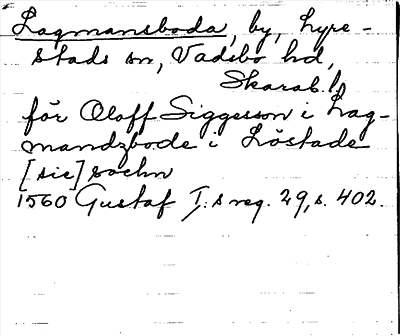 Lagmansboda, by, Lyre-
stads sn, Vadsbo hd,
Skarab. l.
för Oloff Siggesson i Lag-
mandzbode i Löstade
[sic] sochn
1560 Gustaf I:s reg. 29, s. 402.